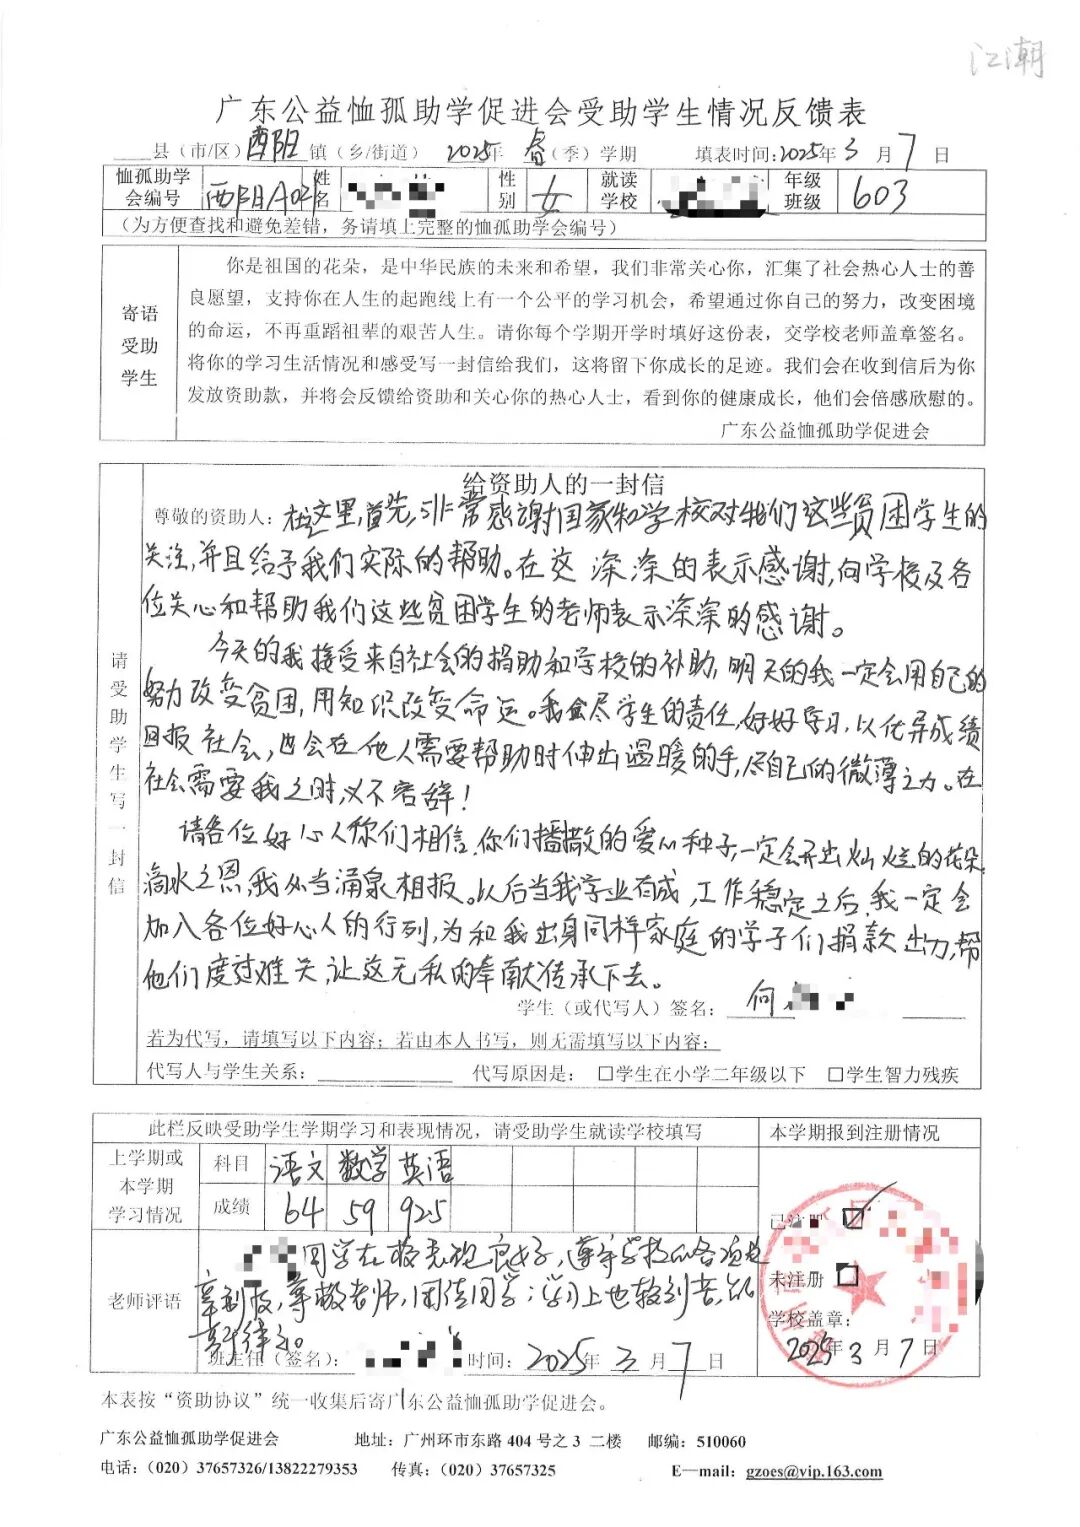 江潮
广东公益恤孤助学促进会受助学生情况反馈表
县（市/区）酉阳镇（乡/街道） 2025年春（季）学期 填表时间:2025年3月7日
恤孤助学会编号 酉阳A021 姓名 性别 女 就读学校 年级班级 603
（为方便查找和避免差错，务请填上完整的恤孤助学会编号）
寄语受助学生
你是祖国的花朵，是中华民族的未来和希望，我们非常关心你，汇集了社会热心人士的善
良愿望，支持你在人生的起跑线上有一个公平的学习机会，希望通过你自己的努力，改变困境
的命运，不再重蹈祖辈的艰苦人生。请你每个学期开学时填好这份表，交学校老师盖章签名。
将你的学习生活情况和感受写一封信给我们，这将留下你成长的足迹。我们会在收到信后为你
发放资助款，并将会反馈给资助和关心你的热心人士，看到你的健康成长，他们会倍感欣慰的。
广东公益恤孤助学促进会
请受助学生写一封信
给资助人的一封信
尊敬的资助人：在这里,首先,非常感谢国家和学校对我们这些贫困学生的
关注,并且给予我们实际的帮助。在这 深深的表示感谢,向学校及各
位关心和帮助我们这些贫困学生的老师表示深深的感谢。
今天的我接受来自社会的捐助和学校的补助,明天的我一定会用自己的
努力改变贫困,用知识改变命运。我会尽学生的责任,好好学习,以优异成绩
回报社会,也会在他人需要帮助时伸出温暖的手,尽自己的微薄之力。在
社会需要我之时,义不容辞!
请各位好心人你们相信,你们播散的爱心种子,一定会开出灿烂的花朵,
滴水之恩,我必当涌泉相报。以后当我学业有成,工作稳定之后,我一定会
加入各位好心人的行列,为和我出身同样家庭的学子们捐款出力,帮
他们度过难关,让这无私的奉献传承下去。
学生（或代写人）签名： 何
若为代写，请填写以下内容；若由本人书写，则无需填写以下内容：
代写人与学生关系： 代写原因是： □学生在小学二年级以下 □学生智力残疾
此栏反映受助学生学期学习和表现情况，请受助学生就读学校填写 本学期报到注册情况
上学期或本学期学习情况 科目 语文 数学 英语
成绩 64 59 92.5
老师评语
同学在校表现良好,遵守学校的各项规
章制度,尊敬老师,团结同学;学习上也较刻苦,
班主任（签名）： 时间：2025年3月7日
已注册 ☑
未注册 □
学校盖章：
2025年3月7日
本表按“资助协议”统一收集后寄广东公益恤孤助学促进会。
广东公益恤孤助学促进会 地址：广州环市东路 404 号之 3 二楼 邮编：510060
电话：（020）37657326/13822279353 传真：（020）37657325 E—mail：gzoes@vip.163.com